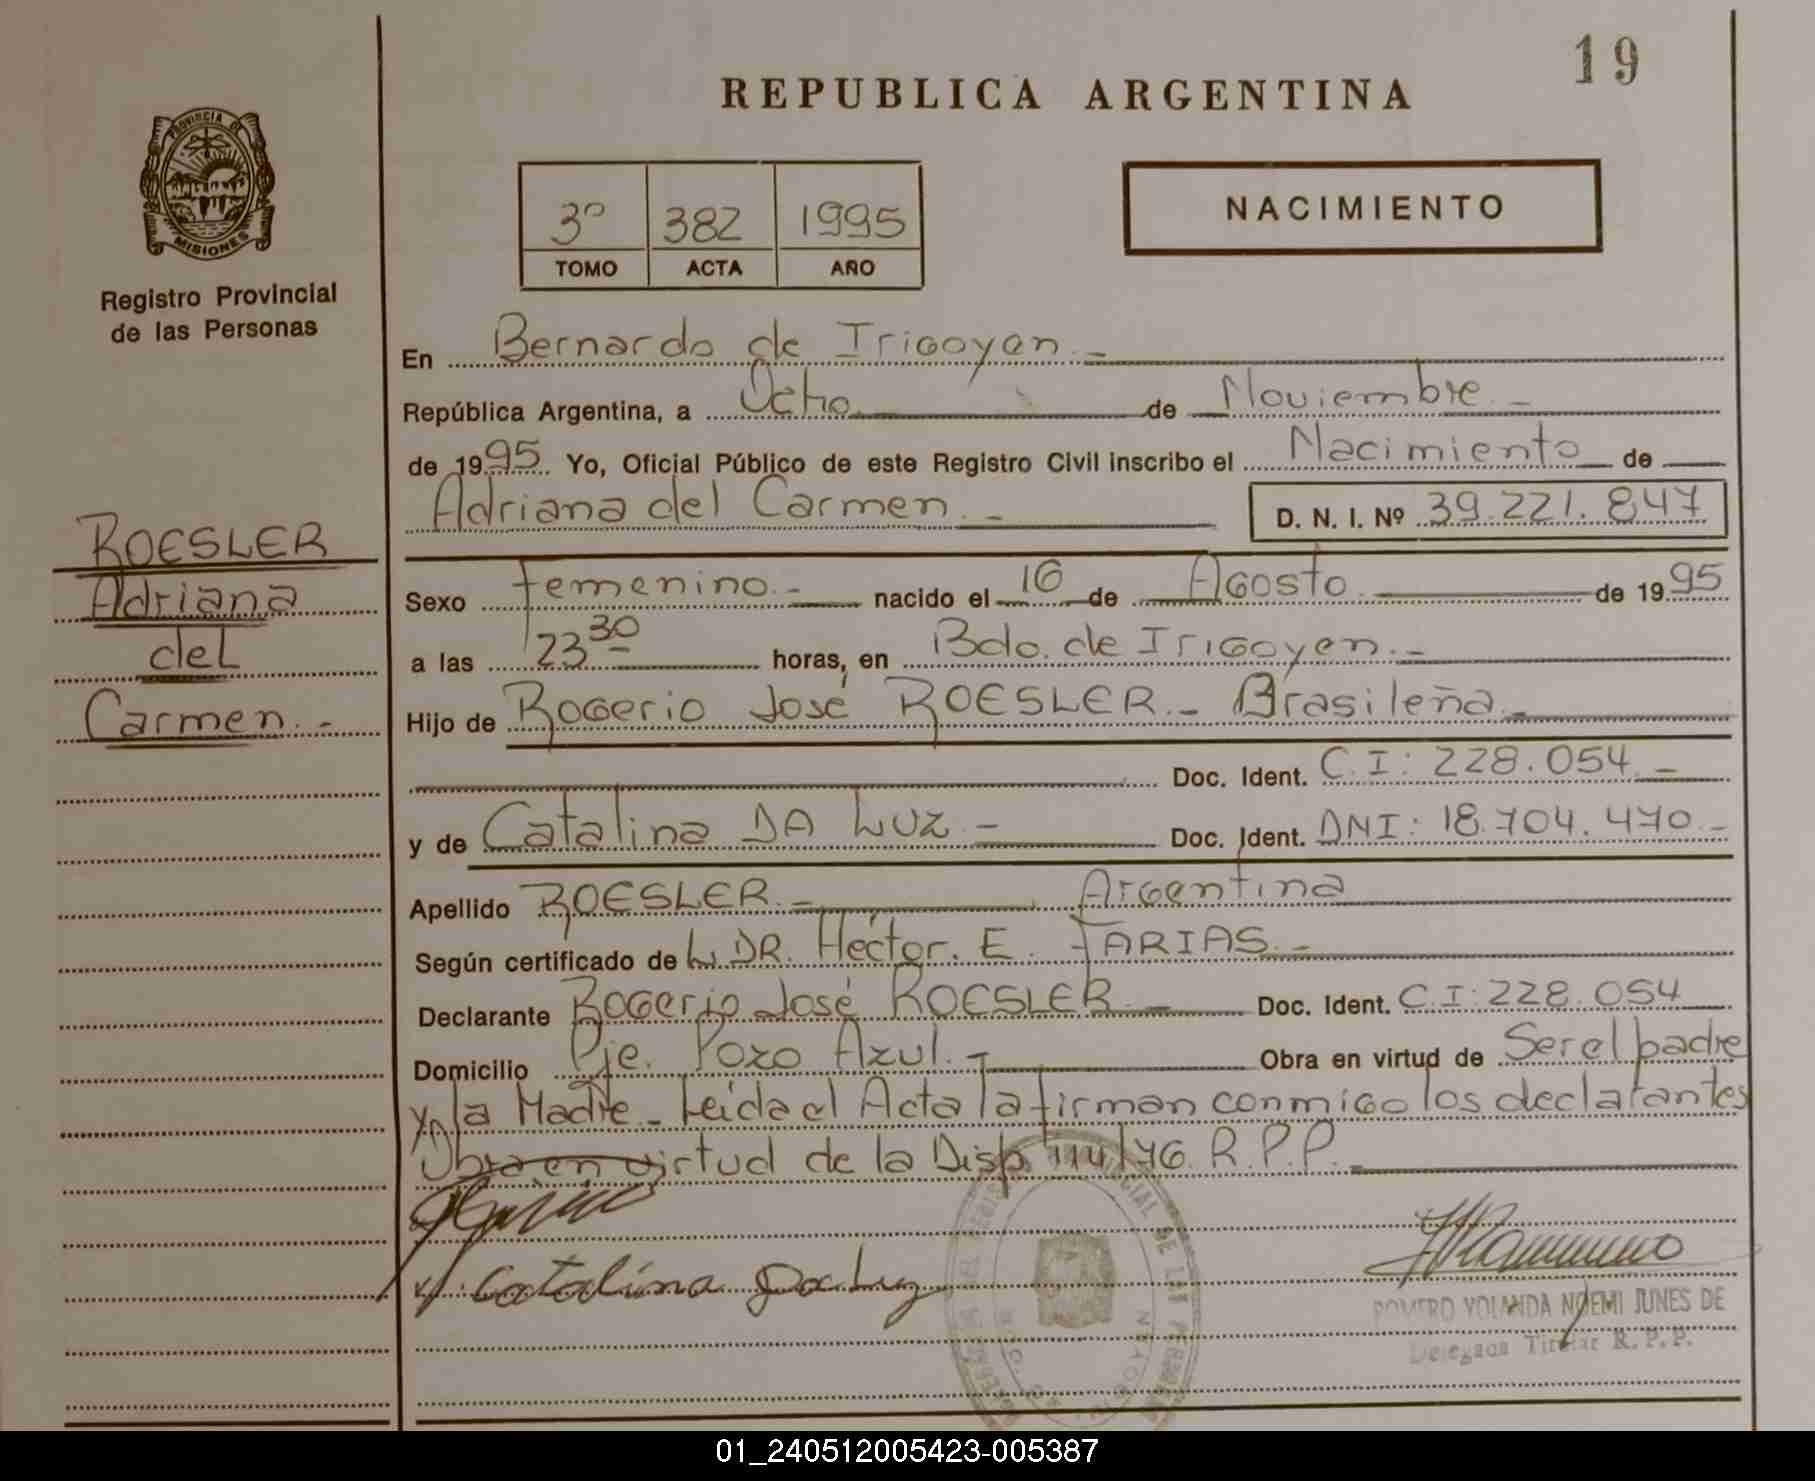 19
REPUBLICA ARGENTINA
PROVINCIA DE
MISIONES
Registro Provincial
de las Personas
3º 382 1995
TOMO ACTA AÑO
NACIMIENTO
En Bernardo de Irigoyen.-
República Argentina, a Ocho de Noviembre.-
de 1995. Yo, Oficial Público de este Registro Civil inscribo el Nacimiento de
Adriana del Carmen.- D. N. I. Nº 39.221.847
ROESLER
Adriana
del
Carmen.-
Sexo Femenino.- nacido el 16 de Agosto de 1995
a las 23 30 horas, en Bdo. de Irigoyen.-
Hijo de Rogerio José ROESLER.- Brasileña.-
Doc. Ident. C.I: 228.054.-
y de Catalina DA LUZ.- Doc. Ident. DNI: 18.704.470.-
Apellido ROESLER.- Argentina
Según certificado de L DR. Héctor. E. FARIAS.-
Declarante Rogerio José ROESLER.- Doc. Ident. C.I: 228.054
Domicilio Pje. Pozo Azul.- Obra en virtud de Ser el padre
y la Madre.- Leida el Acta la firman conmigo los declarantes
Obra en virtud de la Disp. 114/76. R.P.P.-
Catalina Da Luz
ROMERO YOLANDA NOEMI JUNES DE
Delegada Titular R.P.P.
01_240512005423-005387